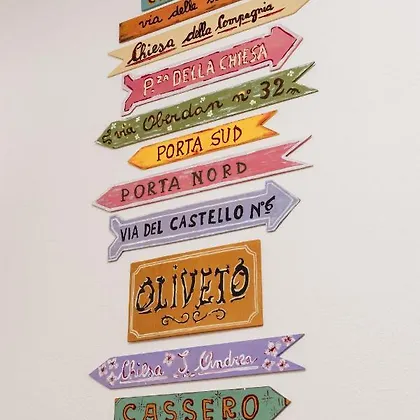 via delle
Chiesa della Compagnia
P.za DELLA CHIESA
via Oberdan n° 32
PORTA SUD
PORTA NORD
VIA DEL CASTELLO N°6
OLIVETO
Chiesa S. Andrea
CASSERO